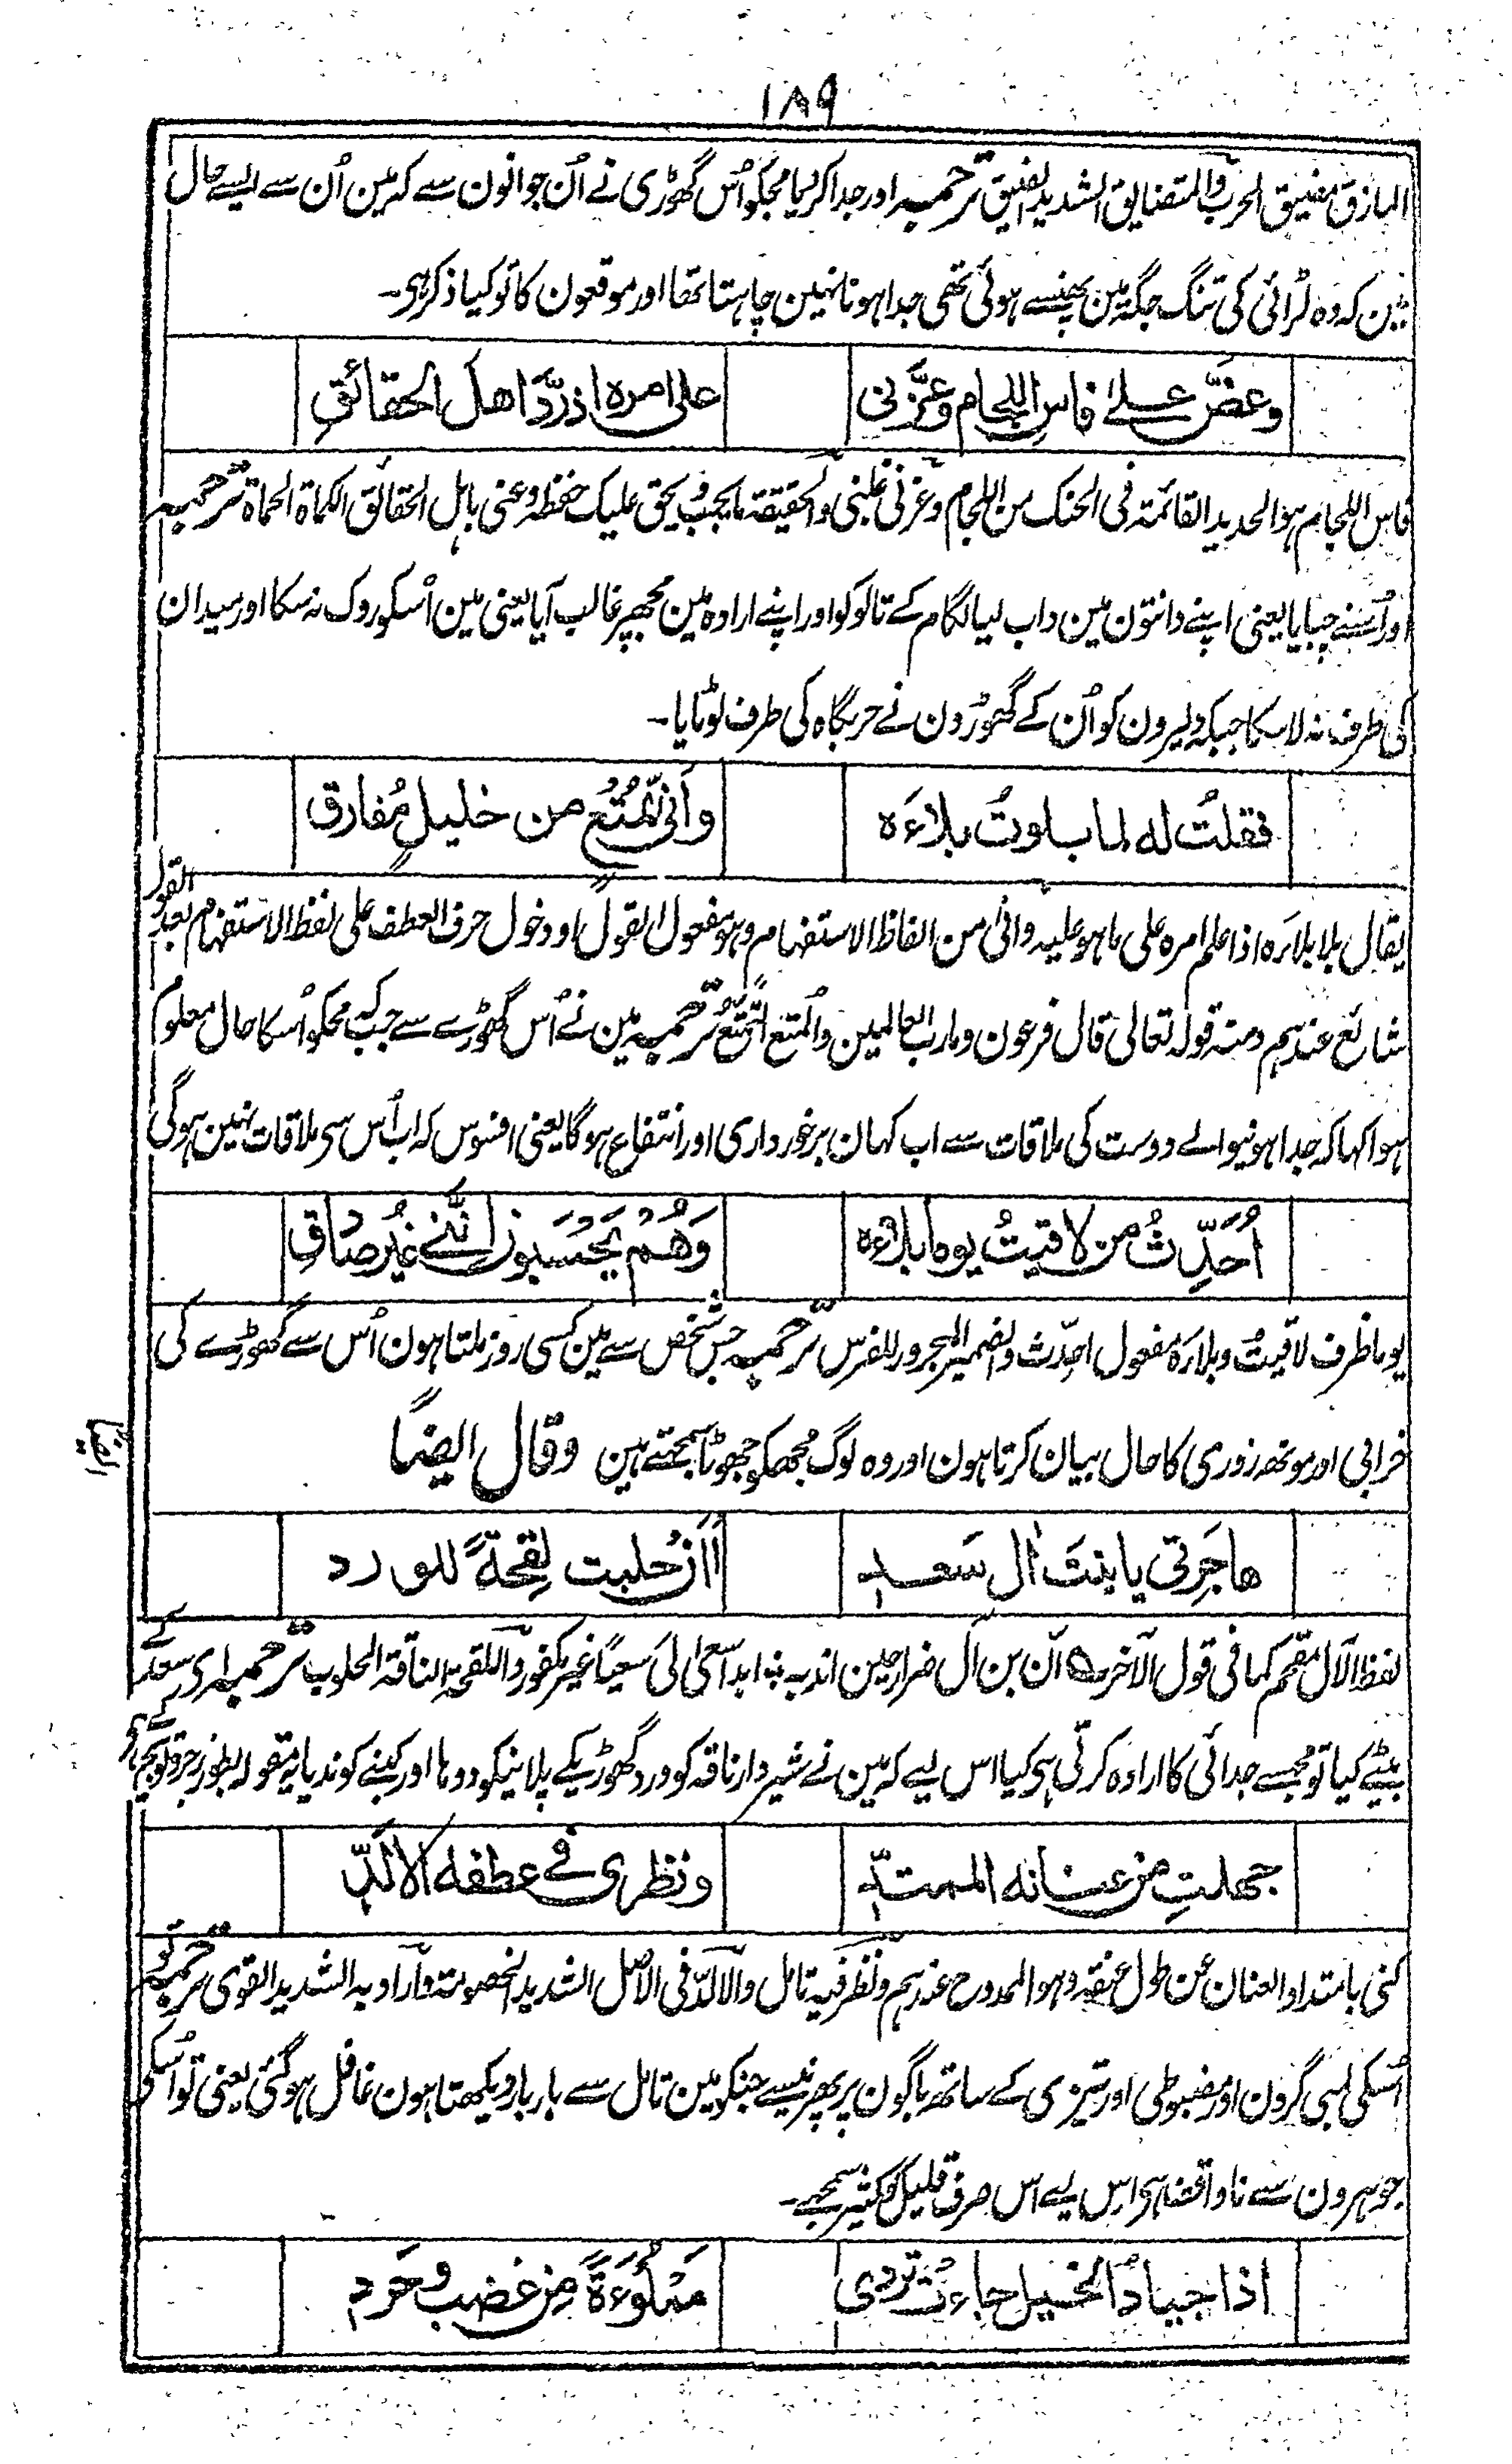 ۱۸۹
المازق مضیق الحرب والمتضایق الشدید الضیق ترجمہ اور جدا کر لیا مجکو اُس گھوڑی نے اُن جوانون سے کہ مین اُن سے ایسے حال
مین کہ وہ لڑائی کی تنگ جگہ مین پھنسے ہوئی تھی جدا ہونا نہین چاہتا تھا اور موقعون کا تو کیا ذکر ہی۔
وعضَّ علیٰ فاسِ اللجام وعزَّنی علی امرہ اذ ردَّ اھل الحقائقِ
فاس اللجام ہو الحدید القائمۃ فی الحنک من اللجام وعزنی غلبنی والحقیقۃ ما یجب و یحق علیک حفظہ وعنی باہل الحقائق الکماۃ الحماۃ ترجمہ
اور اُسنے چبایا یعنی اپنے دانتون مین داب لیا لگام کے تالو کو اور اپنے ارادہ مین مجھپر غالب آیا یعنی مین اُسکو روک نہ سکا اور میدان
کی طرف نہ لا سکا جبکہ دلیرون کو اُن کے گھوڑون نے حربگاہ کی طرف لوٹایا۔
فقلتُ لہ لما بلوتُ بلاءَہ وأنّی تمتُّعٌ من خلیلٍ مُفارق
یقال بلا بلاءَہ اذا علم امرہ علی ما ہو علیہ وانّی من الفاظ الاستفہام وہو مفعول القول او دخول حرف العطف علی لفظ الاستفہام بعد القول
شائع عندہم ومنہ قولہ تعالی قال فرعون وما رب العالمین والمتع التمتُّع ترجمہ مین نے اُس گھوڑے سے جب کہ مجکو اُسکا حال معلوم
ہوا کہا کہ جدا ہونیوالے دوست کی ملاقات سے اب کہان برخورداری اور انتفاع ہوگا یعنی افسوس کہ اب اُس سی ملاقات نہین ہوگی
اُحَدِّثُ من لاقیتُ یوما بلاءہ وَھُمْ یَحْسَبونَ اَنَّنی غیرُ صادقِ
یوما ظرف لاقیتُ وبلاءَہ مفعول احدّث والضمیر المجرور للفرس ترجمہ جس شخص سے مین کسی روز ملتا ہون اُس سے گھوڑے کی
خرابی اور مونھ زوری کا حال بیان کرتا ہون اور وہ لوگ مجھکو جھوٹا سمجھتے ہین وقال ایضًا
ایضًا
ھاجَرتی یا بنتَ اٰل سَعدٍ أأن حُلبت لِقحةً للورد
لفظ الآل مقحم کما فی قول الآخر ان بن آل ضرار حین اندبہ زیدا سعی لی سعیًا غیر مکفور واللقحۃ الناقۃ الحلوب ترجمہ اری سعد کے
بیٹی کیا تو مجسے جدائی کا ارادہ کرتی ہی کیا اس لیے کہ مین نے شیردار ناقہ کو ورد گھوڑیکے پلانیکو دوہا اور کنبے کو ندیا یہ مقولہ بطور زجر و توبیخ کے ہی
جھلتِ من عنانہ الممتدّ ونظری فی عطفہ الالدّ
کنی بامتداد العنان عن طول عنقہ وہو الممدوح عندہم ونظر فیہ تامل والالدّ فی الاصل الشدید الخصومۃ واراد بہ الشدید القوی ترجمہ تو
اُسکی لمبی گردن اور مضبوطی اور تیزی کے ساتھ باگون پر پھرنیسے جنکو مین تامل سے بار بار دیکھتا ہون غافل ہوگئی یعنی تو اُسکی
جوہرون سے ناواقف ہی اس لیے اس صرف قلیل کو کثیر سمجھے۔
اذا جیادُ الخیل جاءت تردی مملوءةً من غضب وحَرد